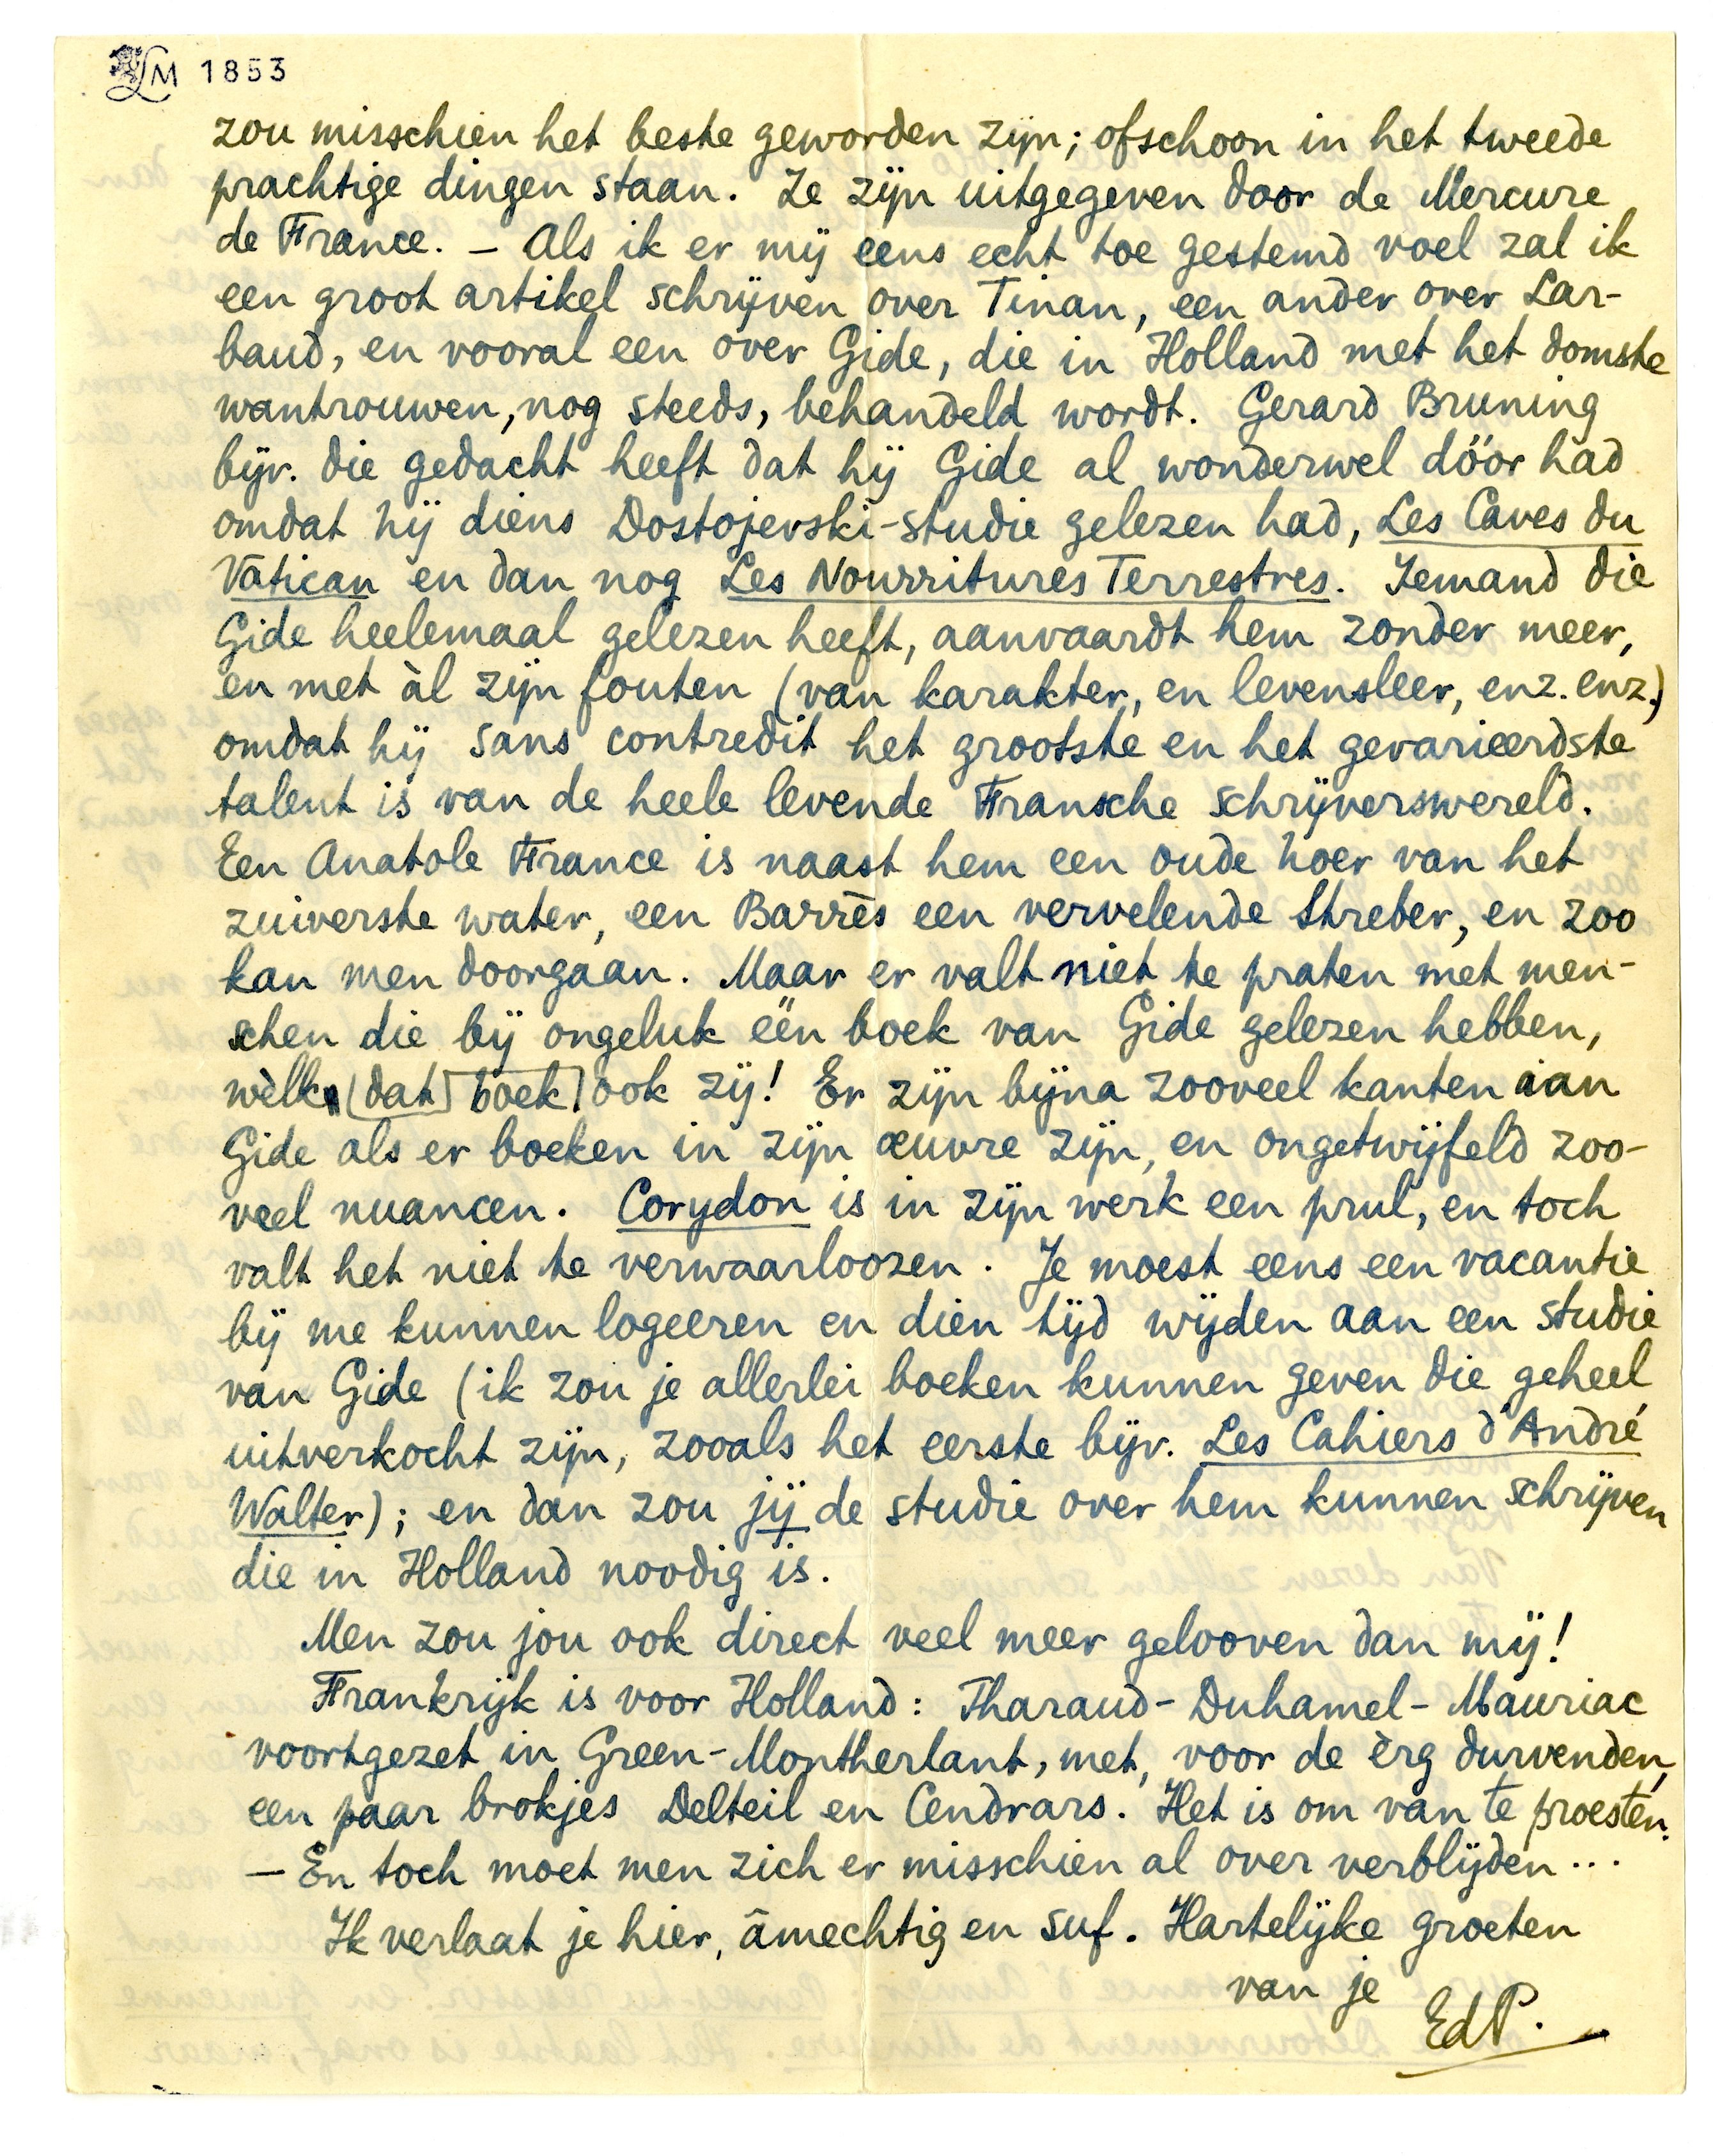 LM 1853
zou misschien het beste geworden zijn; ofschoon in het tweede
prachtige dingen staan. Ze zijn uitgegeven door de Mercure
de France. – Als ik er mij eens echt toe gestemd voel zal ik
een groot artikel schrijven over Tinan, een ander over Lar-
baud, en vooral een over Gide, die in Holland met het domste
wantrouwen, nog steeds, behandeld wordt. Gerard Bruning
bijv. die gedacht heeft dat hij Gide al wonderwel dóór had
omdat hij diens Dostojevski-studie gelezen had, Les Caves du
Vatican en dan nog Les Nourritures Terrestres. Iemand die
Gide heelemaal gelezen heeft, aanvaardt hem zonder meer,
en met àl zijn fouten (van karakter, en levensleer, enz. enz.)
omdat hij sans contredit het grootste en het gevarieerdste
talent is van de heele levende Fransche schrijverswereld.
Een Anatole France is naast hem een oude hoer van het
zuiverste water, een Barrès een vervelende Streber, en zoo
kan men doorgaan. Maar er valt niet te praten met men-
schen die bij ongeluk één boek van Gide gelezen hebben,
wèlk (dat boek) ook zij! Er zijn bijna zooveel kanten aan
Gide als er boeken in zijn œuvre zijn, en ongetwijfeld zoo-
veel nuancen. Corydon is in zijn werk een prul, en toch
valt het niet te verwaarloozen. Je moest eens een vacantie
bij me kunnen logeeren en dien tijd wijden aan een studie
van Gide (ik zou je allerlei boeken kunnen geven die geheel
uitverkocht zijn, zooals het eerste bijv. Les Cahiers d'André
Walter); en dan zou jij de studie over hem kunnen schrijven
die in Holland noodig is.
Men zou jou ook direct veel meer gelooven dan mij!
Frankrijk is voor Holland: Tharaud-Duhamel-Mauriac
voortgezet in Green-Montherlant, met, voor de èrg durvenden,
een paar brokjes Delteil en Cendrars. Het is om van te proesten.
– En toch moet men zich er misschien al over verblijden...
Ik verlaat je hier, âmechtig en suf. Hartelijke groeten
van je
EdP.